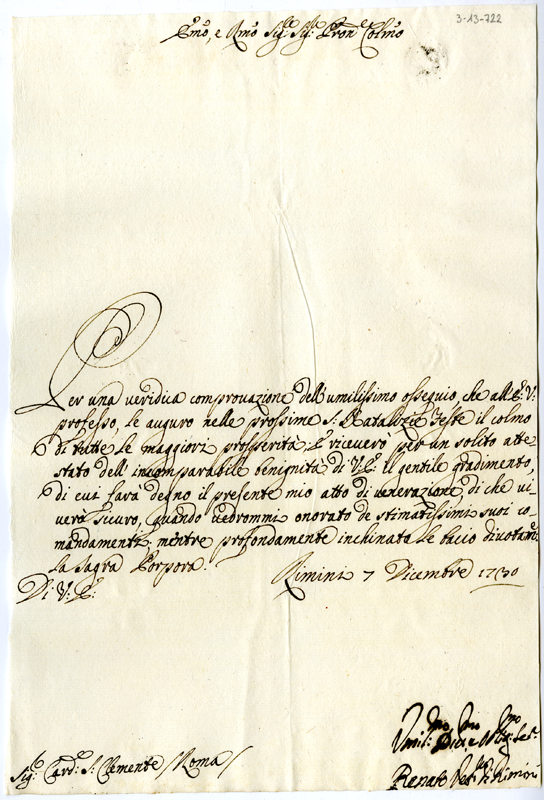 3-13-722
Em̃o, e Rm̃o Sigr̃ Sigr̃ Pron̄ Colm̃o
Per una veridica comprovazione dell'umilissimo ossequio, che all'E: V:
professo, le auguro nelle prossime S: Natalizie Feste il colmo
di tutte le maggiori prosperità; E riceverò per un solito atte
stato dell'incomparabile benignità di V: E: il gentile gradimento,
di cui farà degno il presente mio atto di venerazione, di che vi-
verò sicuro, quando vedrommi onorato de stimatissimi suoi co-
mandamenti, mentre profondamente inchinato le bacio divotam̃:
la Sagra Porpora.
Rimini 7 Dicembre 1730
Di V: E:
Sig: Card: S: Clemente / Roma /
Umil: Div: e Obbl: Ser:
Renato Vesc: di Rimini